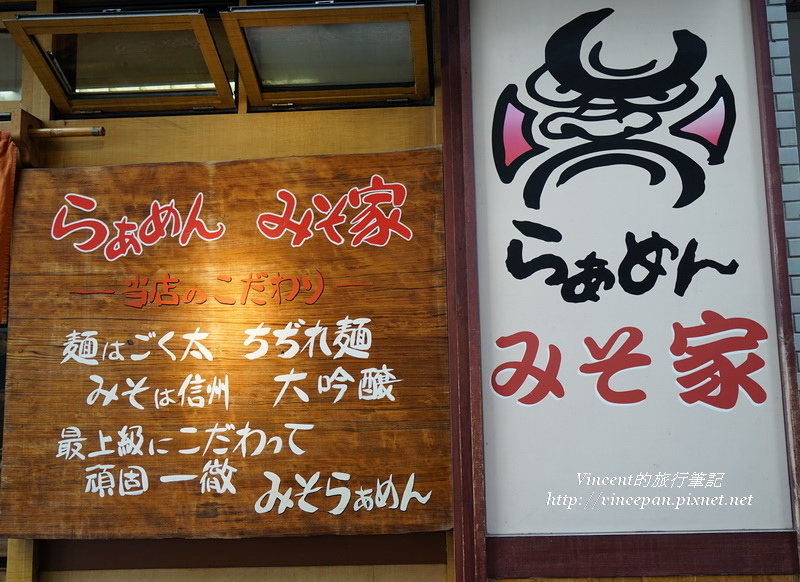 らぁめん みそ家
当店のこだわり
麺はごく太 ちぢれ麺
みそは信州 大吟醸
最上級にこだわって
頑固一徹
みそらぁめん
らぁめん
みそ家
Vincent的旅行筆記
http://vincepan.pixnet.net